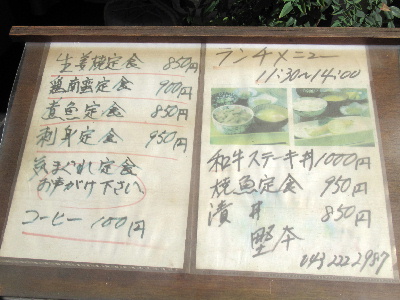 生姜焼定食 850円
鶏南蛮定食 900円
煮魚定食 850円
刺身定食 950円
気まぐれ定食
お声がけ下さい
コーヒー 100円
ランチメニュー
11:30~14:00
和牛ステーキ丼 1000円
焼魚定食 950円
漬丼 850円
野本
043 222 2987